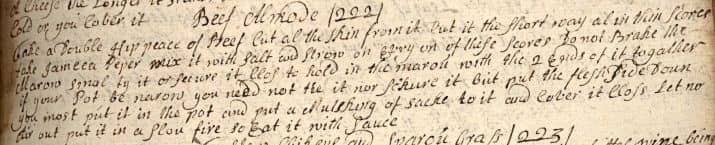 Cold or you Cover it Beef Almode [222]
take a Double flip peace of Beef Cut al the Skin from it Cut it the short way al in thin scores
take Jameca peper mix it with Salt and Strow on Every on of these scores Do not Brake the
Marow Sinal ty it or secure it Clos to hold in the marow with the 2 Ends of it togather
if your Pot be narow you need not tie it nor sekure it But put the flesh side Down
you most put it in the pot and put a Mutchking of sacke to it and Cover it Closs Let no
Air out put it in a Slou fire so Eat it with Sauce
Chikens and Sparou Grass [223]
wine being